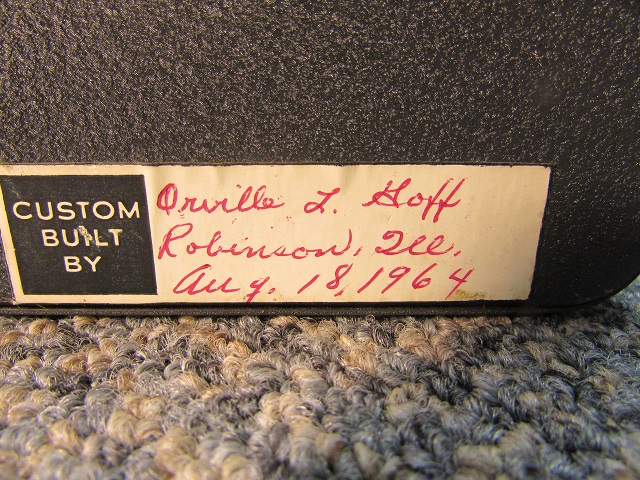 CUSTOM
BUILT
BY
Orville L. Hoff
Robinson, Ill.
Aug. 18, 1964